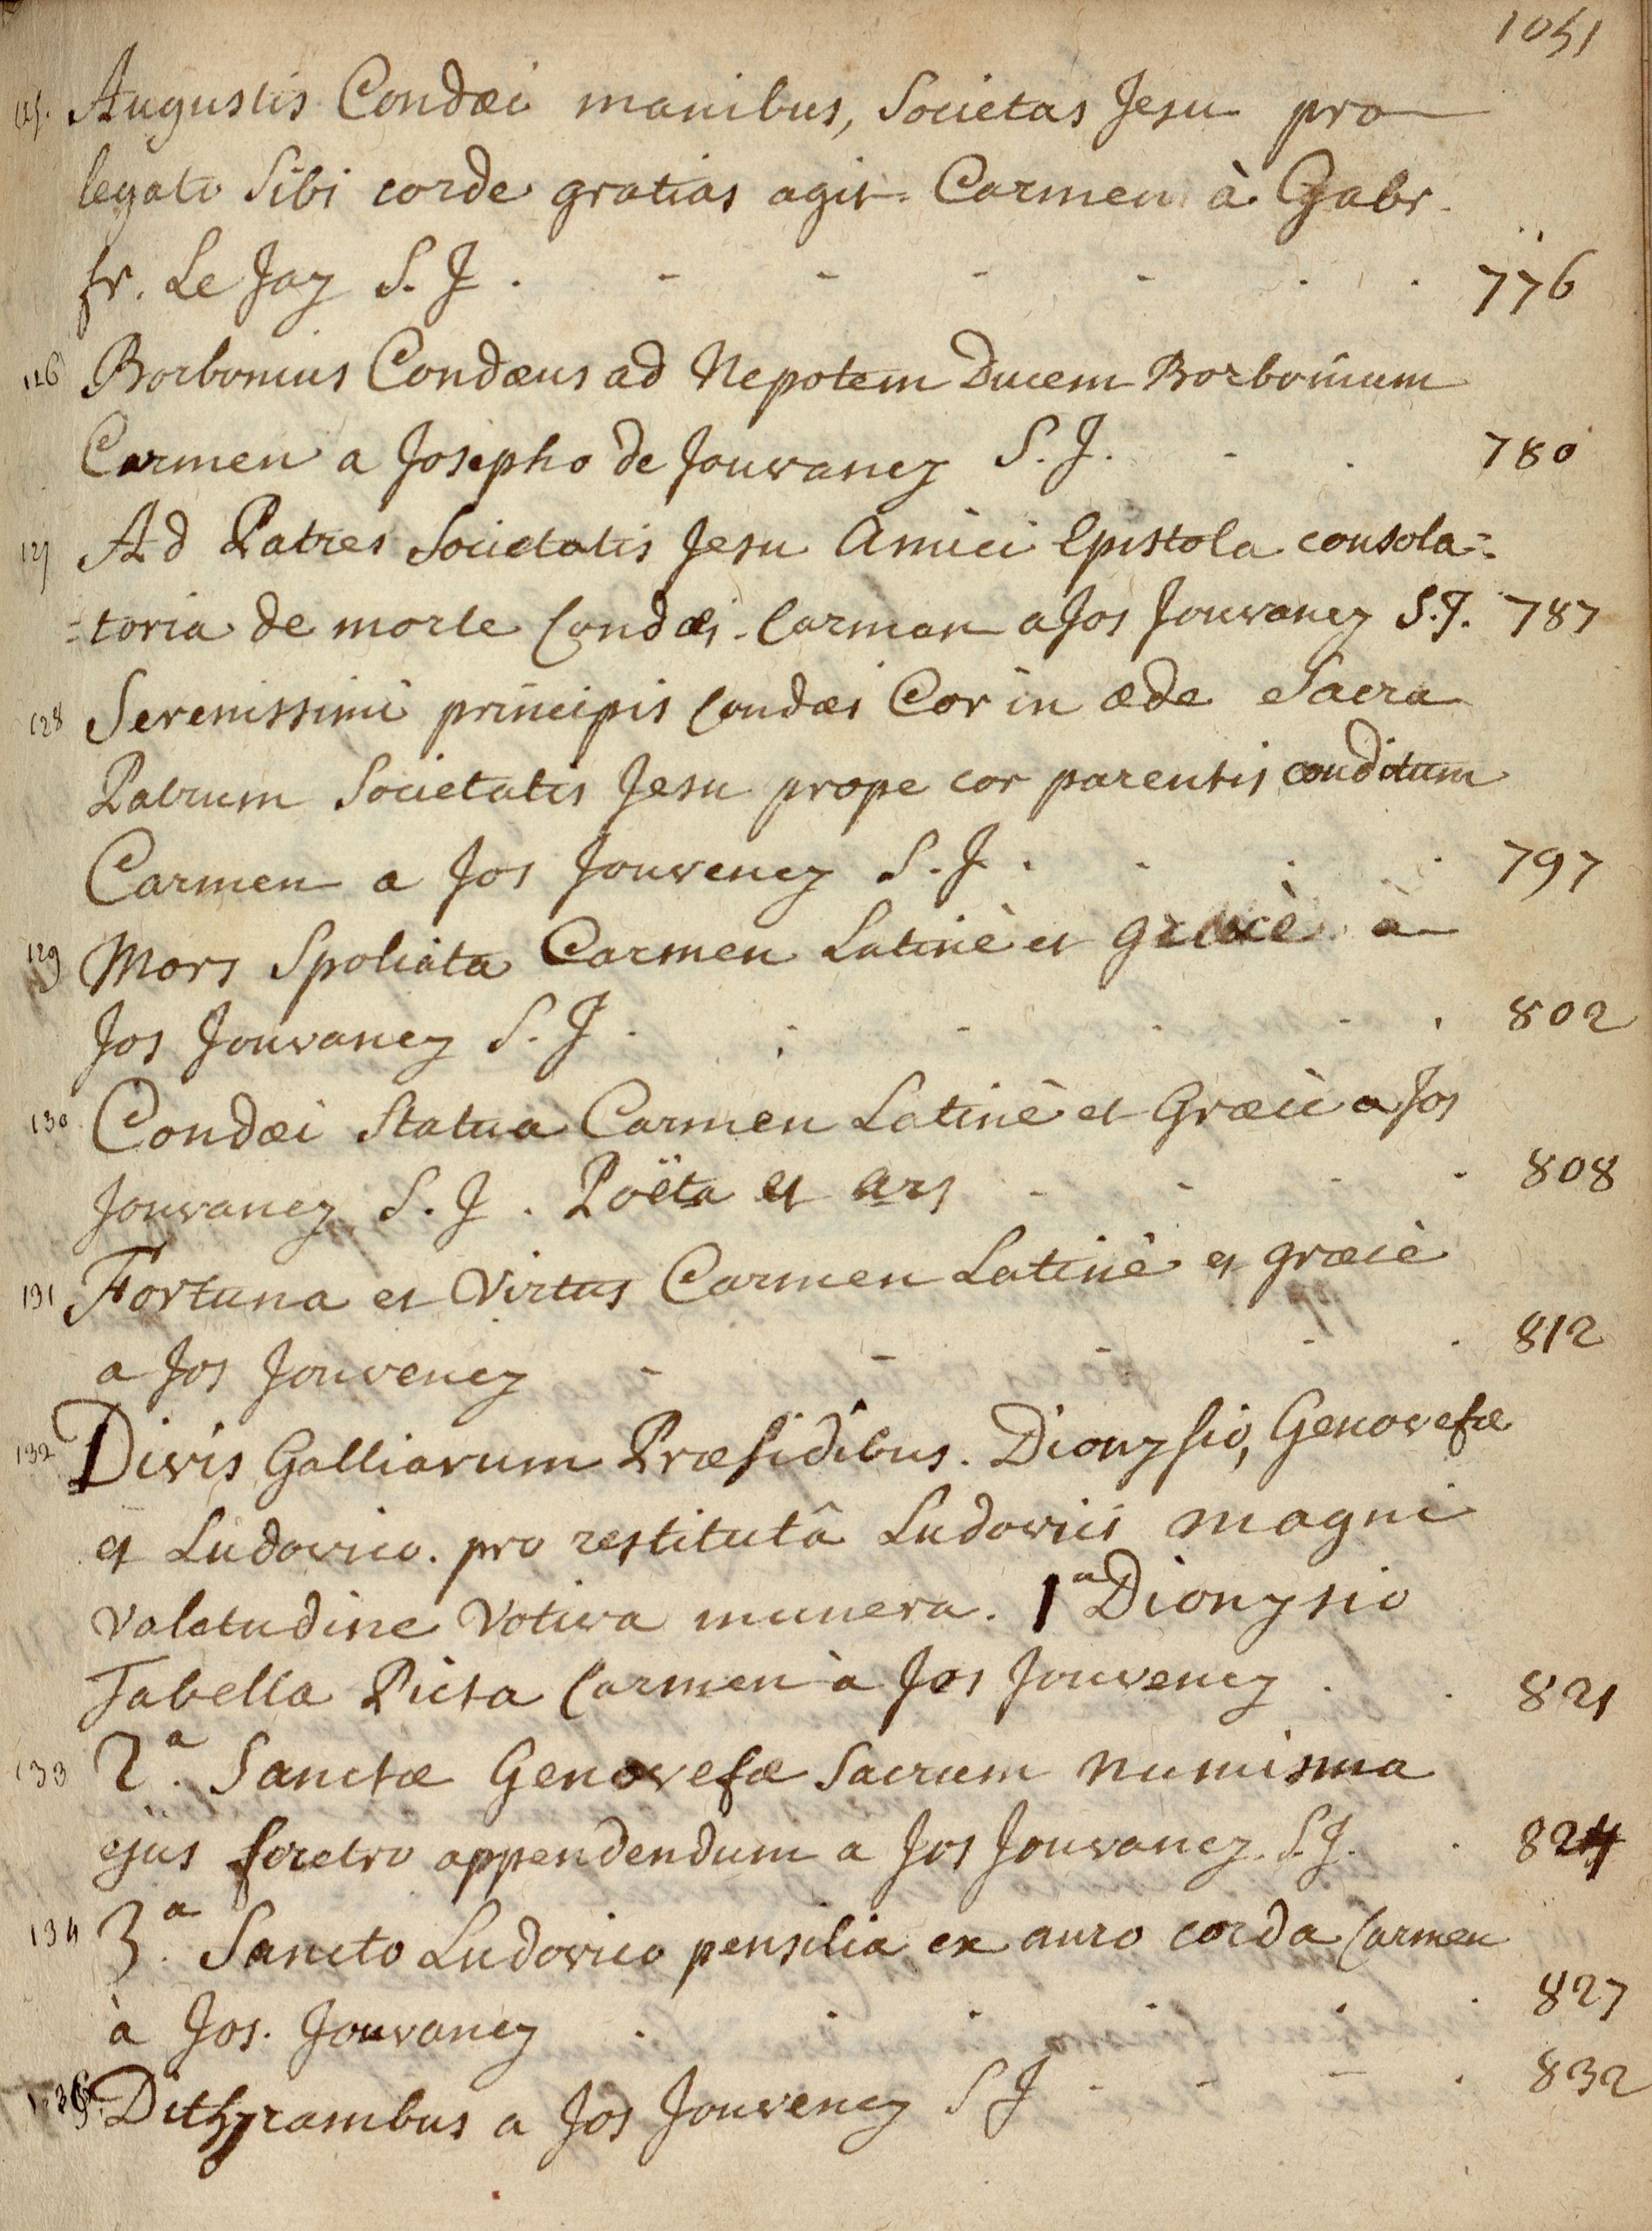 1051
125. Augustis Condæi manibus, Societas Jesu pro
legato Sibi corde gratias agit. Carmen à Gabr.
fr. Le Jay S. J. - - - - . . 776
126 Borbonius Condæus ad Nepotem Ducem Borbonium
Carmen a Josepho de Jouvancy S. J. - . 780
127 Ad Patres Societatis Jesu Amici Epistola consola=
=toria de morte Condæi. Carmen a Jos Jouvancy S. J. 787
128 Serenissimi principis Condæi Cor in æde Sacra
Patrum Societatis Jesu prope cor parentis conditum
Carmen a Jos Jouvency S. J. . . . 797
129 Mors Spoliata Carmen Latinè et græcè à
Jos Jouvancy S. J. . - - - . 802
130 Condæi Statua Carmen Latinè et Græcè a Jos
Jouvancy S. J. Poëta et ars - - - . 808
131 Fortuna et Virtus Carmen Latinè et græcè
a Jos Jouvency - - - - . 812
132 Divis Galliarum Præsidibus. Dionysio, Genovefæ
et Ludovico. pro restitutâ Ludovici magni
valetudine Votiva munera. 1a Dionysio
Tabella Picta Carmen à Jos Jouvency . . 821
133 2a. Sanctæ Genovefæ Sacrum numisma
ejus feretro appendendum a Jos Jouvancy. S. J. . 824
134 3a. Sancto Ludovico pensilia ex auro corda Carmen
à Jos. Jouvancy . . . . . . 827
Dithyrambus a Jos Jouvency S J - - - . 832